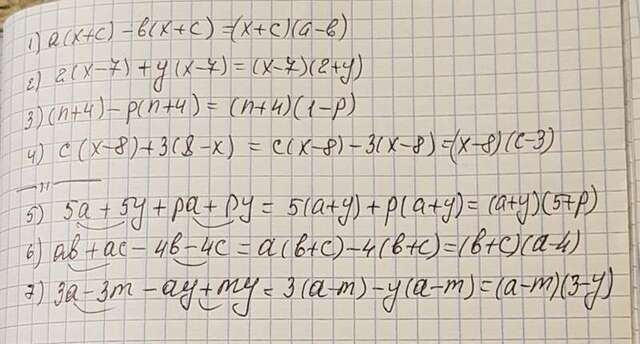 1) a(x+c) - в(x+c) = (x+c)(a-в)
2) 2(x-7) + y(x-7) = (x-7)(2+y)
3) (n+4) - p(n+4) = (n+4)(1-p)
4) c(x-8) + 3(8-x) = c(x-8) - 3(x-8) = (x-8)(c-3)
— " —
5) 5a + 5y + pa + py = 5(a+y) + p(a+y) = (a+y)(5+p)
6) aв + ac - 4в - 4c = a(в+c) - 4(в+c) = (в+c)(a-4)
7) 3a - 3m - ay + my = 3(a-m) - y(a-m) = (a-m)(3-y)